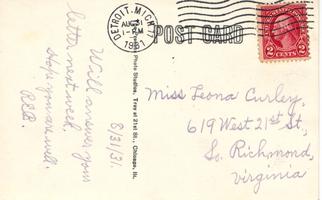 DETROIT, MICH. 17
AUG 31
1931
POST CARD
UNITED STATES POSTAGE
2 CENTS 2
Will answer your
letter next week.
Hope you are well.
R.E.B.
8/31/31.
Photo Studios, Troy at 21st St., Chicago, Ill.
Miss Leona Curley,
619 West 21st St,
So. Richmond,
Virginia